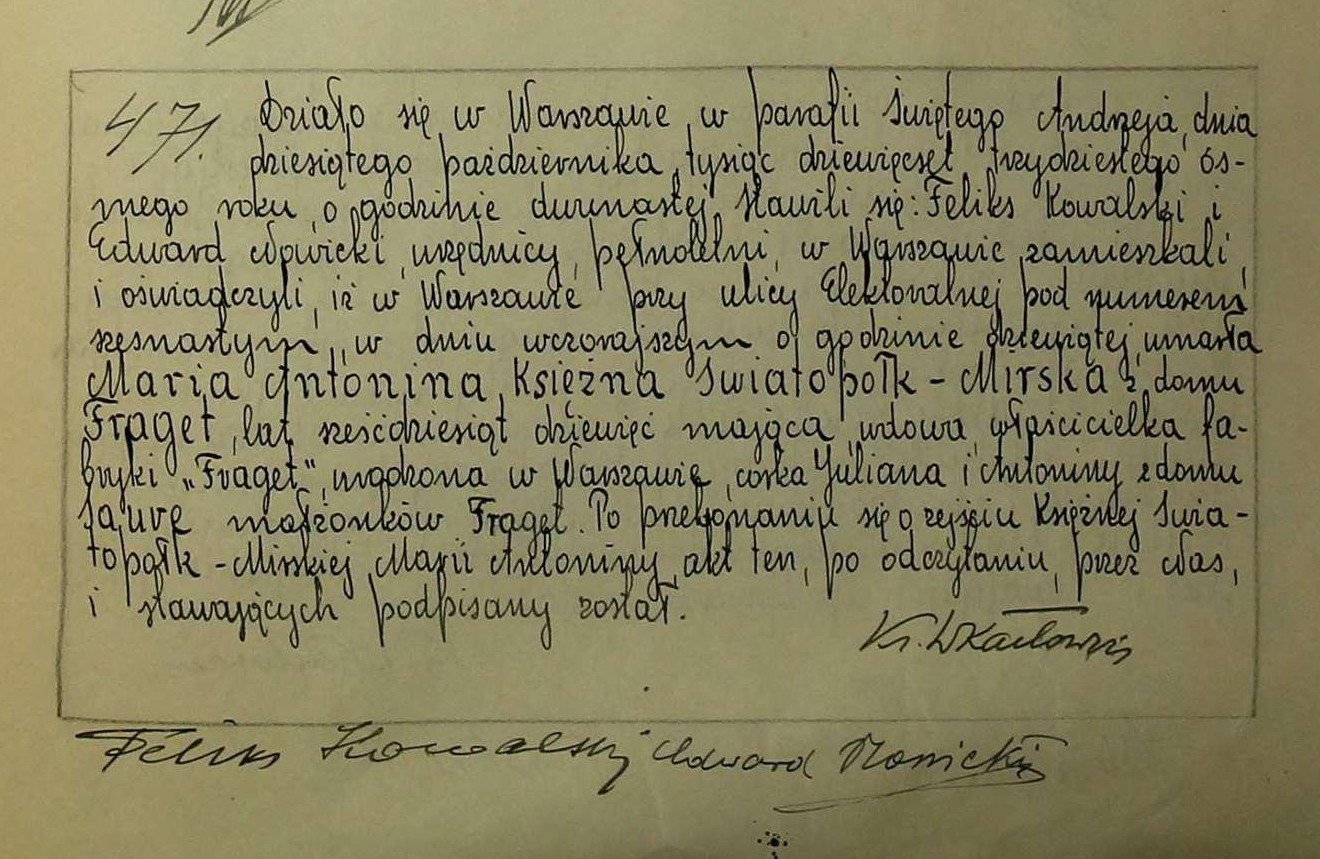 471. Działo się w Warszawie, w parafii świętego Andrzeja, dnia
dziesiątego października, tysiąc dziewięćset trzydziestego ós-
mego roku, o godzinie dwunastej. Stawili się: Feliks Kowalski i
Edward Nowicki, urzędnicy, pełnoletni, w Warszawie zamieszkali,
i oświadczyli, iż w Warszawie przy ulicy Elektoralnej pod numerem
szesnastym, w dniu wczorajszym o godzinie dziewiątej, umarła
Maria Antonina, Księżna Światopołk-Mirska z domu
Fraget, lat sześćdziesiąt dziewięć mająca, wdowa, właścicielka fa-
bryki „Fraget", urodzona w Warszawie, córka Juliana i Antoniny z domu
Jauve małżonków Fraget. Po przekonaniu się o zejściu Księżnej Świa-
topołk-Mirskiej Marii Antoniny, akt ten, po odczytaniu, przez Nas,
i stawających podpisany został.
Feliks Kowalski Edward Nowicki